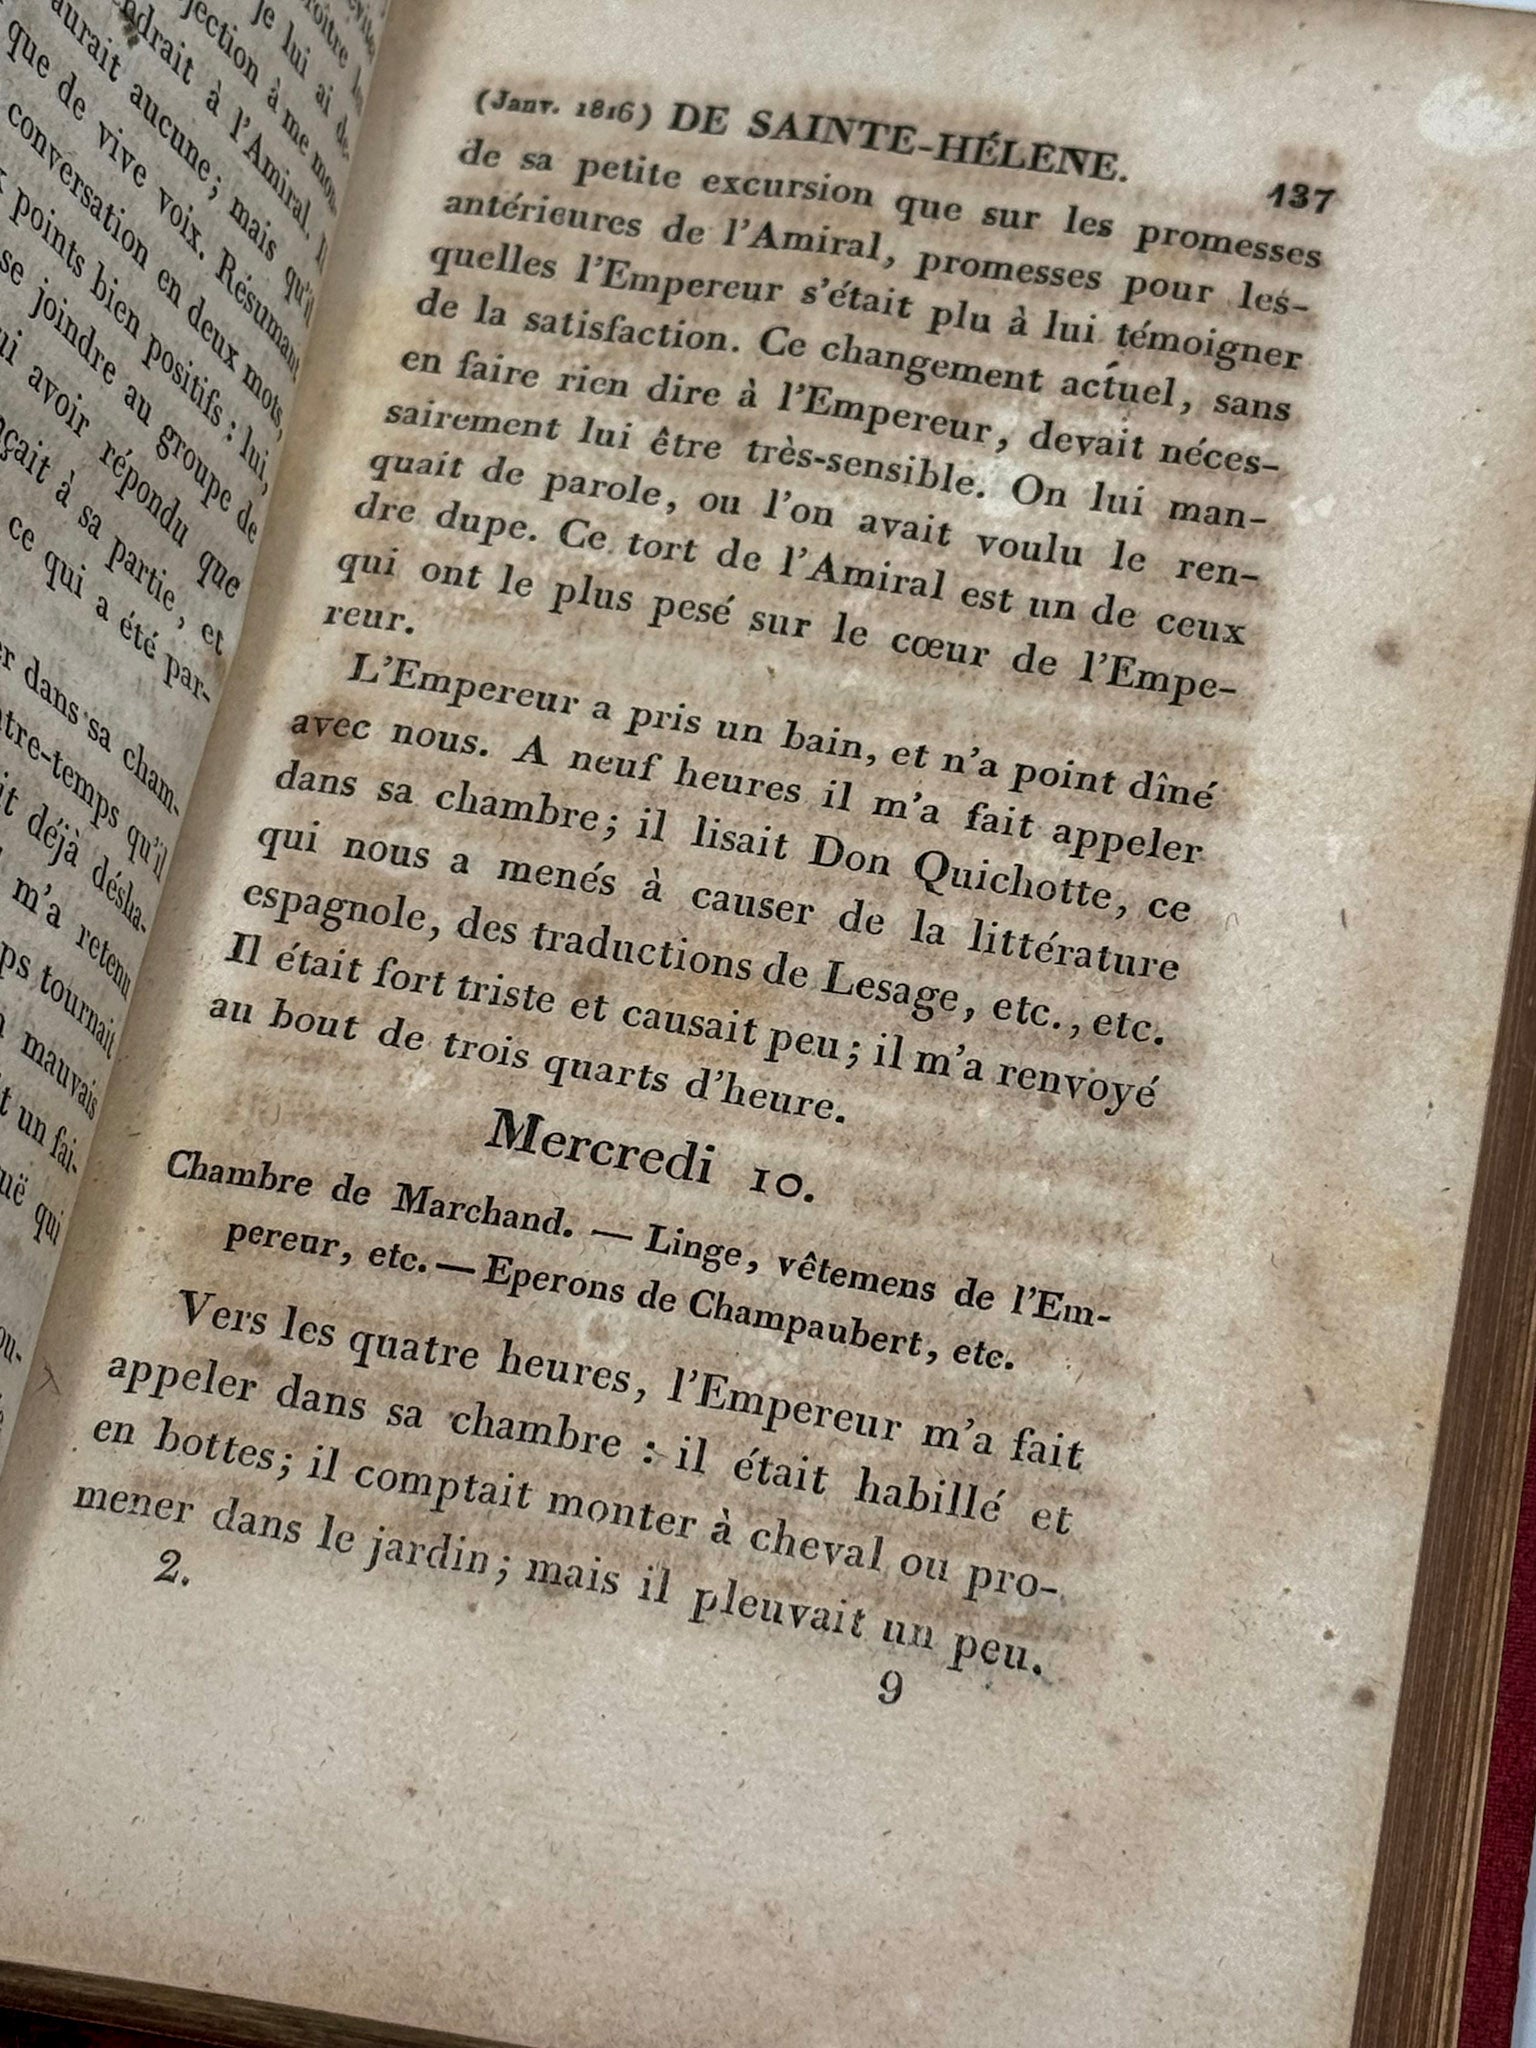 évite
roître le
je lui ai de-
jection à me mon-
ndrait à l'Amiral. Il
aurait aucune; mais qu'il
que de vive voix. Résumant
conversation en deux mots,
points bien positifs : lui,
se joindre au groupe de
ui avoir répondu que
nçait à sa partie, et
ce qui a été par-
er dans sa cham-
ntre-temps qu'il
it déjà désha-
m'a retenu
ps tournait
mauvais
t un fai-
uë qui
ou-
(Janv. 1816) DE SAINTE-HÉLÈNE. 137
de sa petite excursion que sur les promesses
antérieures de l'Amiral, promesses pour les-
quelles l'Empereur s'était plu à lui témoigner
de la satisfaction. Ce changement actuel, sans
en faire rien dire à l'Empereur, devait néces-
sairement lui être très-sensible. On lui man-
quait de parole, ou l'on avait voulu le ren-
dre dupe. Ce tort de l'Amiral est un de ceux
qui ont le plus pesé sur le cœur de l'Empe-
reur.
L'Empereur a pris un bain, et n'a point dîné
avec nous. A neuf heures il m'a fait appeler
dans sa chambre; il lisait Don Quichotte, ce
qui nous a menés à causer de la littérature
espagnole, des traductions de Lesage, etc., etc.
Il était fort triste et causait peu; il m'a renvoyé
au bout de trois quarts d'heure.
Mercredi 10.
Chambre de Marchand. — Linge, vêtemens de l'Em-
pereur, etc. — Eperons de Champaubert, etc.
Vers les quatre heures, l'Empereur m'a fait
appeler dans sa chambre : il était habillé et
en bottes; il comptait monter à cheval ou pro-
mener dans le jardin; mais il pleuvait un peu.
2. 9